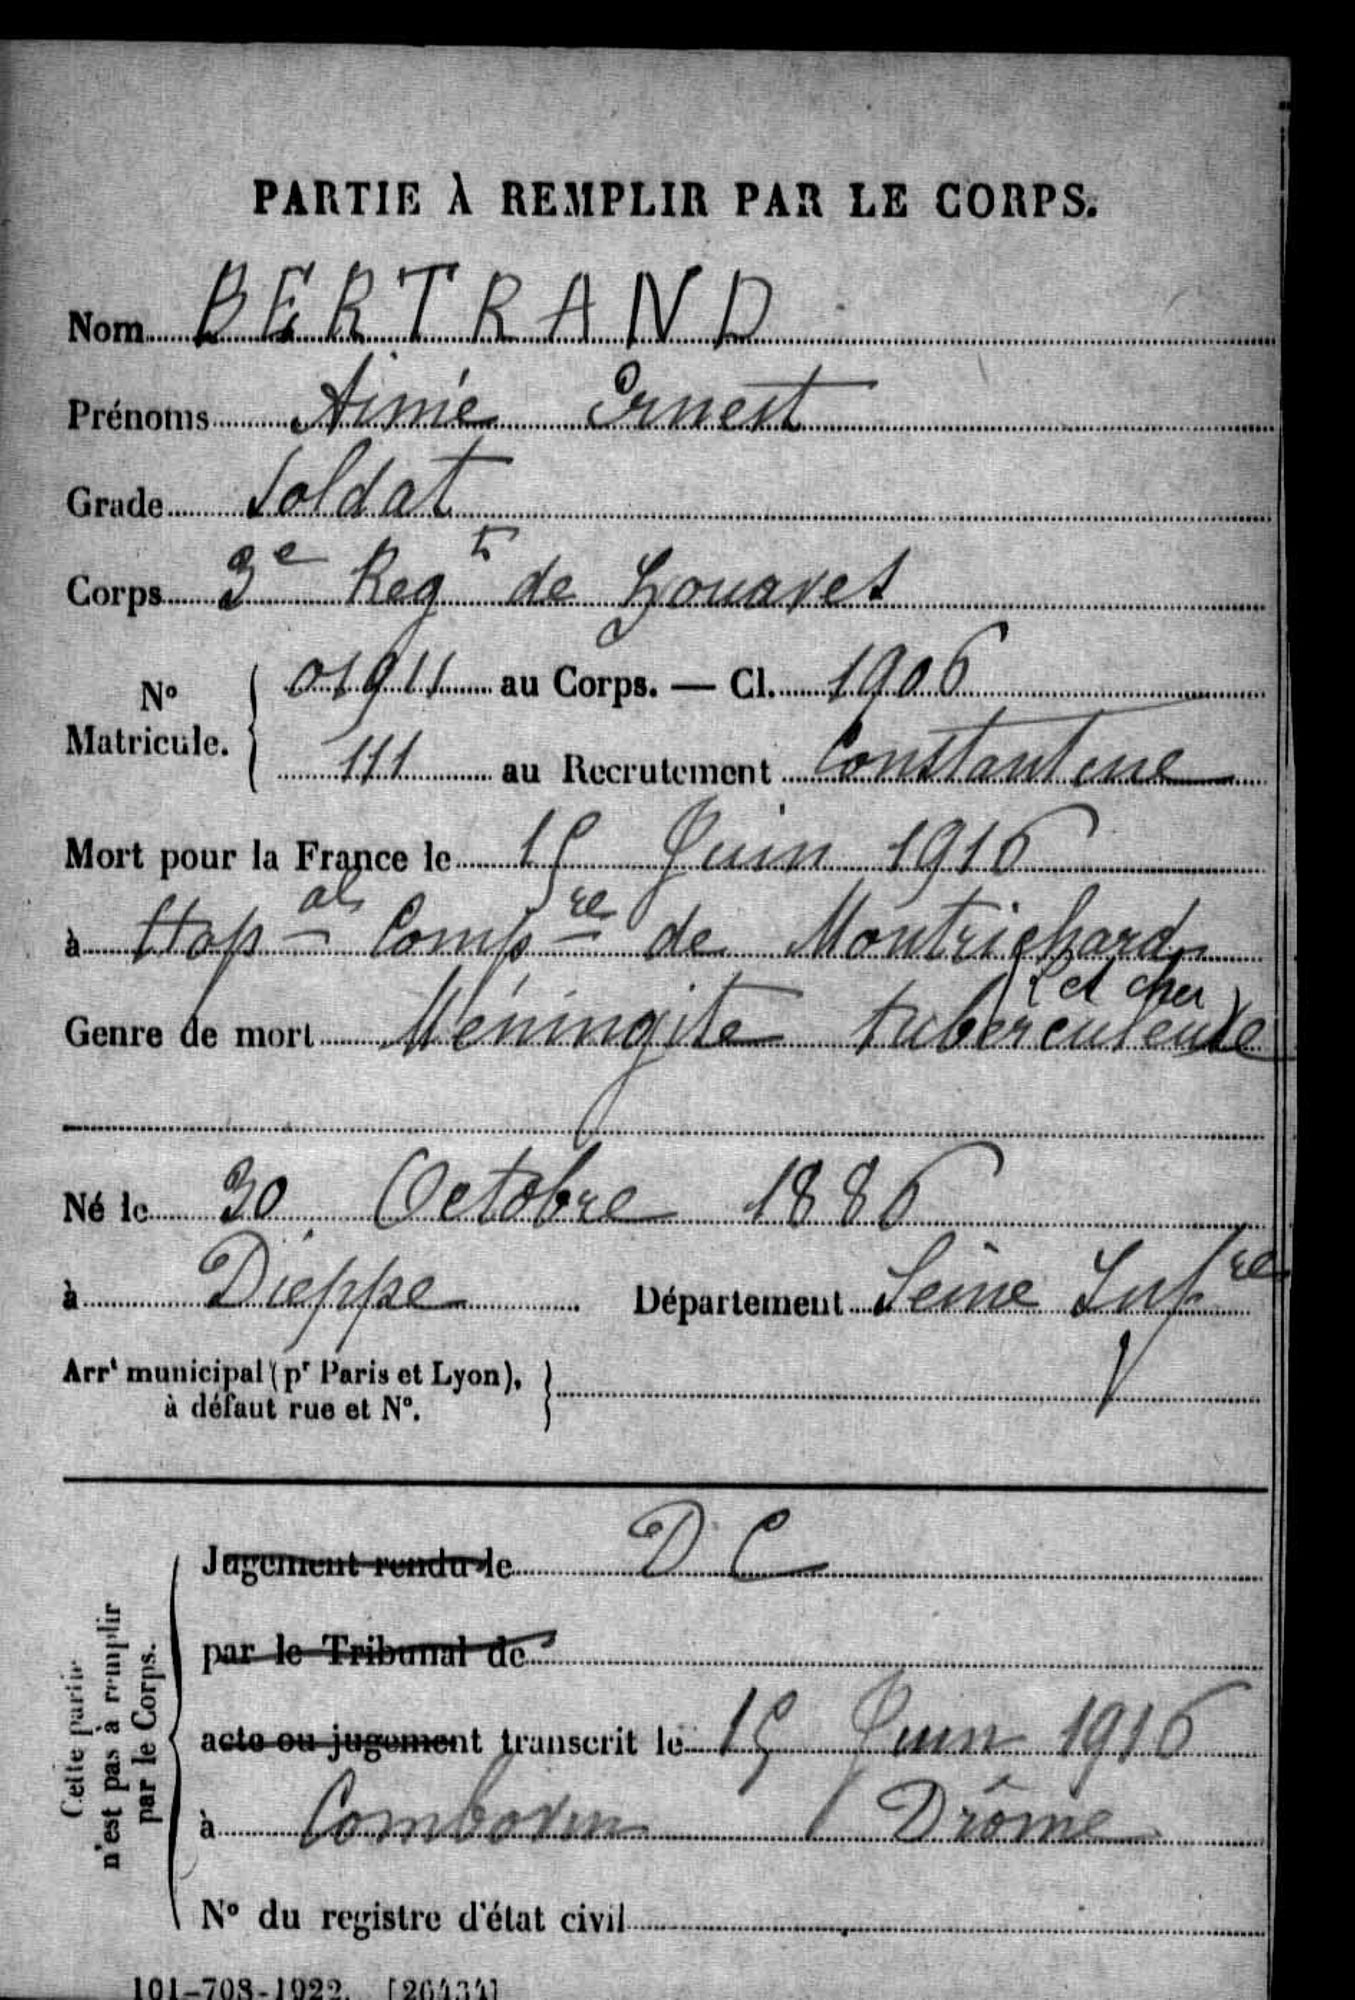 PARTIE À REMPLIR PAR LE CORPS.
Nom BERTRAND
Prénoms Aimé Ernest
Grade Soldat
Corps 3e Regt de Zouaves
No Matricule. { 01911 au Corps. — Cl. 1906
111 au Recrutement Constantine
Mort pour la France le 15 Juin 1916
à Hopal Compre de Montrichard
(L et cher)
Genre de mort Méningite tuberculeuse
Né le 30 Octobre 1886
à Dieppe Département Seine Infre
Arrt municipal (pr Paris et Lyon),
à défaut rue et No.
Cette partie n'est pas à remplir par le Corps.
Jugement rendu le D C
par le Tribunal de
acte ou jugement transcrit le 15 Juin 1916
à Combovin Drôme
No du registre d'état civil
101-708-1922. [26434]